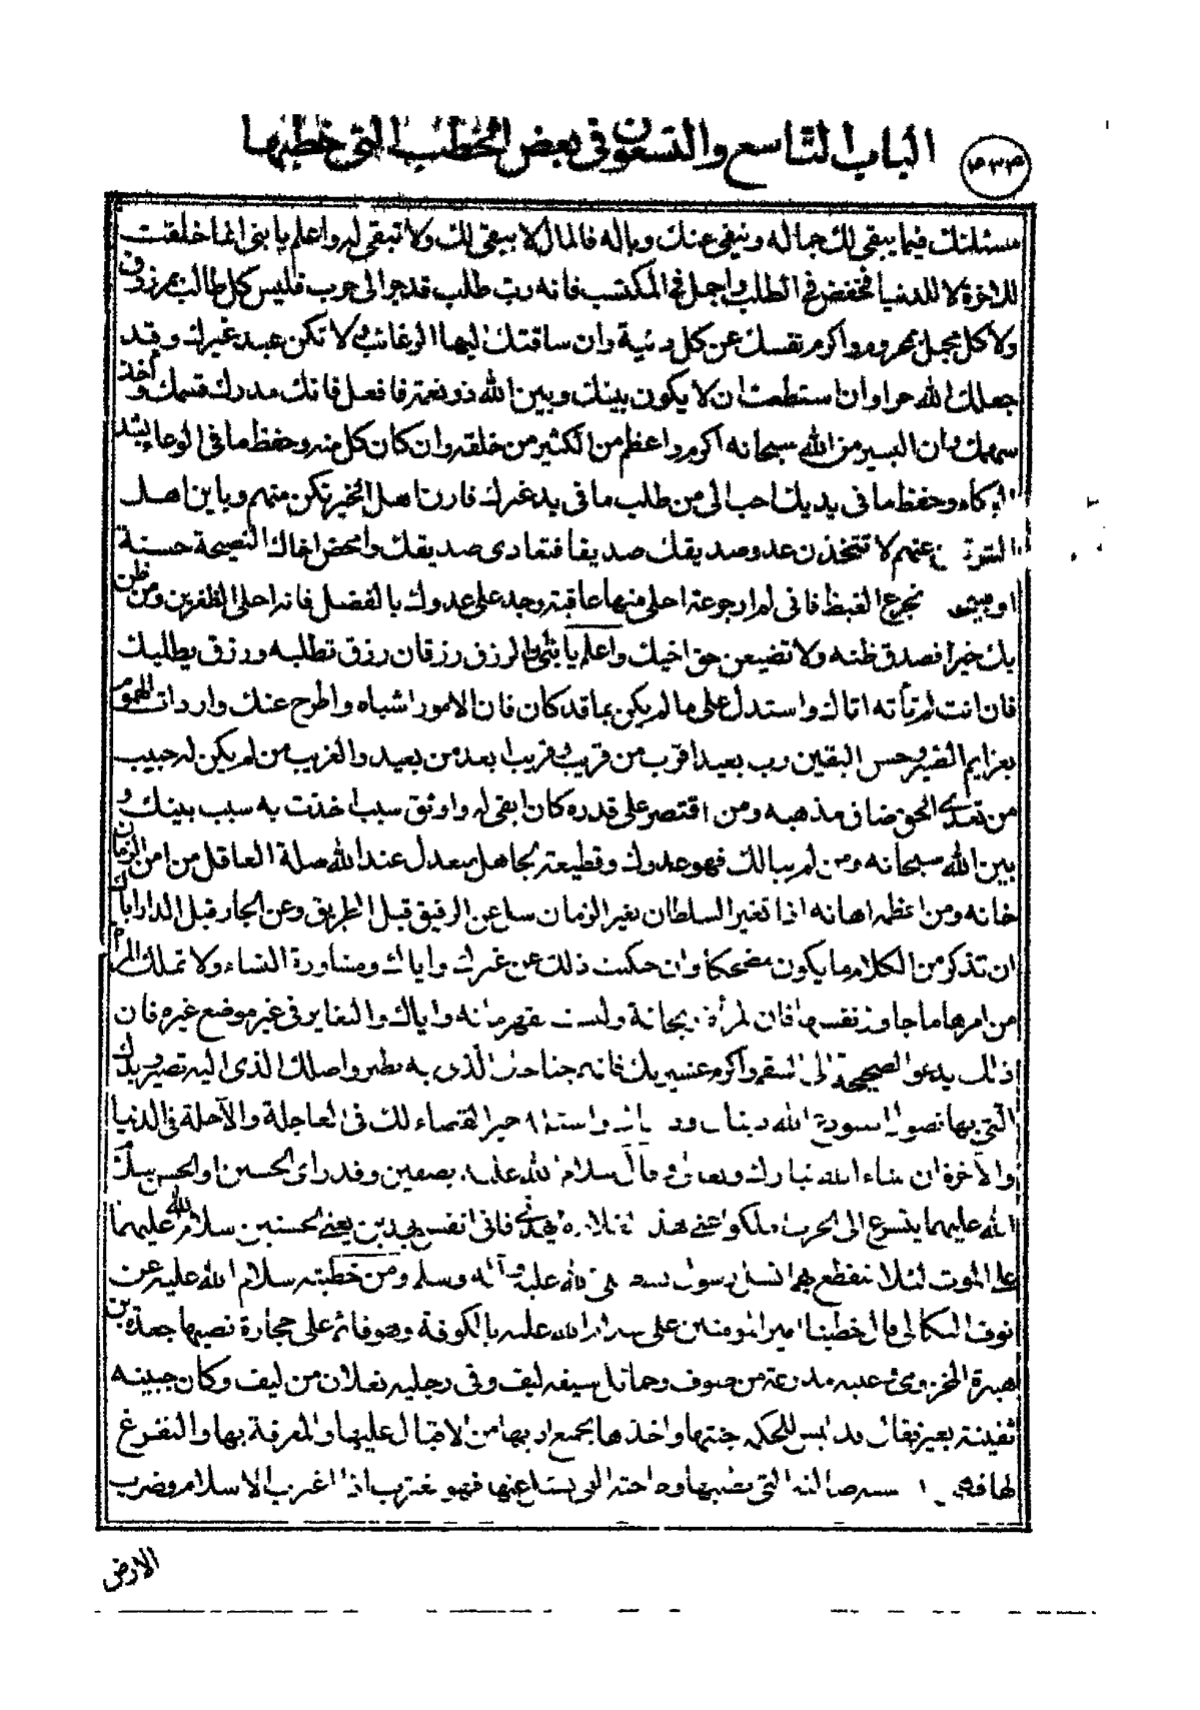 الباب التاسع والتسعون فى بعض الخطب التى خطبها
۵۳۳
مسئلتك فيما يبقى لك جماله وينفى عنك وباله فالمال لا يبقى لك ولا تبقى له واعلم يا بنى انما خلقت
للاخرة لا للدنيا فخفض فى الطلب واجمل فى المكتسب فانه رب طلب قد جر الى حرب فليس كل طالب بمرزوق
ولا كل مجمل بمحروم واكرم نفسك عن كل دنية وان ساقتك اليها الرغائب لا تكن عبد غيرك وقد
جعلك الله حرا وان استطعت ان لا يكون بينك وبين الله ذو نعمة فافعل فانك مدرك قسمك واخذ
سهمك وان اليسير من الله سبحانه اكرم واعظم من الكثير من خلقه وان كان كل منه وحفظ ما فى الوعاء بشد
الوكاء وحفظ ما فى يديك احب الى من طلب ما فى يد غيرك قارن اهل الخير تكن منهم وباين اهل
الشر تبن عنهم لا تتخذن عدو صديقك صديقا فتعادى صديقك وامحض اخاك النصيحة حسنة
او قبيحة تجرع الغيظ فانى لم ار جرعة احلى منها عاقبة وجد على عدوك بالفضل فانه احلى الظفرين ومن ظن
بك خيرا فصدق ظنه ولا تضيعن حق اخيك واعلم يا بنى الرزق رزقان رزق تطلبه ورزق يطلبك
فان انت لم تأته اتاك واستدل على ما لم يكن بما قد كان فان الامور اشباه واطرح عنك واردات الهموم
بعزايم الصبر وحسن اليقين رب بعيد اقرب من قريب وقريب ابعد من بعيد والغريب من لم يكن له حبيب
من تعدى الحق ضاق مذهبه ومن اقتصر على قدره كان ابقى له واوثق سبب اخذت به سبب بينك و
بين الله سبحانه ومن لم يبالك فهو عدوك وقطيعة الجاهل يعدل عند الله صلة العاقل من امن الزمان
خانه ومن اعظمه اهانه اذا تغير السلطان تغير الزمان سل عن الرفيق قبل الطريق وعن الجار قبل الدار اياك
ان تذكر من الكلام ما يكون مضحكا وان حكيت ذلك عن غيرك واياك ومشاورة النساء ولا تملك المرأة
من امرها ما جاوز نفسها فان المرأة ريحانة وليست بقهرمانه واياك والتغاير فى غير موضع غيره فان
ذلك يدعو الصحيحة الى السقم واكرم عشيرتك فانهم جناحك الذى به تطير واصلك الذى اليه تصير ويدك
التى بها تصول استودع الله دينك و واسئله خير القضاء لك فى العاجلة والآجلة فى الدنيا
والآخرة ان شاء الله تبارك وتعالى وقال سلام الله عليه بصفين وقد راى الحسين او الحسن سلام
الله عليهما يتسرع الى الحرب املكوا عنى هذ الغلام لا يهدنى فانى انفس بهذين يعنى الحسنين سلام الله عليهما
على الموت لئلا ينقطع بهما نسل رسول الله صلى الله عليه وآله وسلم ومن خطبته سلام الله عليه عن
نوف البكالى قال خطبنا امير المومنين على سلام الله عليه بالكوفة وهو قائم على حجارة نصبها جعدة بن
هبيرة المخزومى وعليه مدرعة من صوف وحمائل سيفه ليف وفى رجليه نعلان من ليف وكان جبينه
ثفينة بعير فقال قد لبس للحكمة جنتها واخذها بجميع ادبها من الاقبال عليها والمعرفة بها والتفرغ
لها فهى ضالته التى يطلبها وحاجته التى يسئل عنها فهو مغترب اذا اغترب الاسلام وضرب
الارض